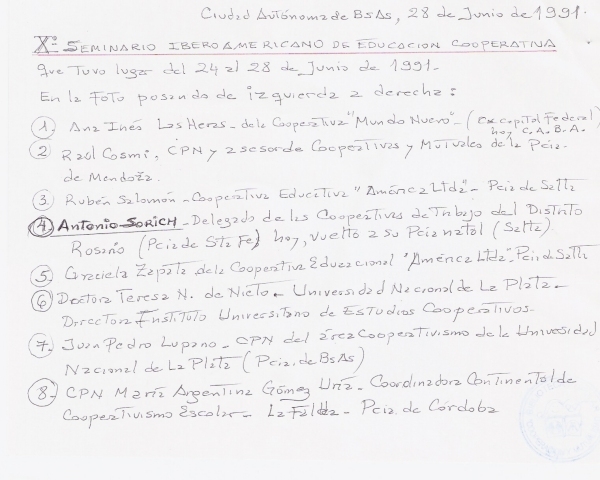 Ciudad Autónoma de BsAs, 28 de Junio de 1991.
Xº SEMINARIO IBEROAMERICANO DE EDUCACION COOPERATIVA
que tuvo lugar del 24 al 28 de Junio de 1991-
En la Foto posando de izquierda a derecha:
1. Ana Inés Las Heras - de la Cooperativa "Mundo Nuevo" - (ex capital Federal)
hoy C.A.B.A.
2 Raúl Cosmi, CPN y asesor de Cooperativas y Mutuales de la Pcia.
de Mendoza.
3. Rubén Salomón - Cooperativa Educativa "América Ltda" - Pcia de Salta
4) ANTONIO SORICH - Delegado de las Cooperativas de Trabajo del Distrito
Rosario (Pcia de Sta Fe) hoy, vuelto a su Pcia natal (Salta).
5. Graciela Zapata de la Cooperativa Educacional "América Ltda". Pcia de Salta
6 Doctora Teresa N. de Nieto - Universidad Nacional de La Plata -
Directora Instituto Universitario de Estudios Cooperativos -
7. Juan Pedro Lupano - CPN del área Cooperativismo de la Universidad
Nacional de La Plata (Pcia. de BsAs)
8. CPN María Argentina Gómez Uría - Coordinadora Continental de
Cooperativismo Escolar - La Falda - Pcia. de Córdoba